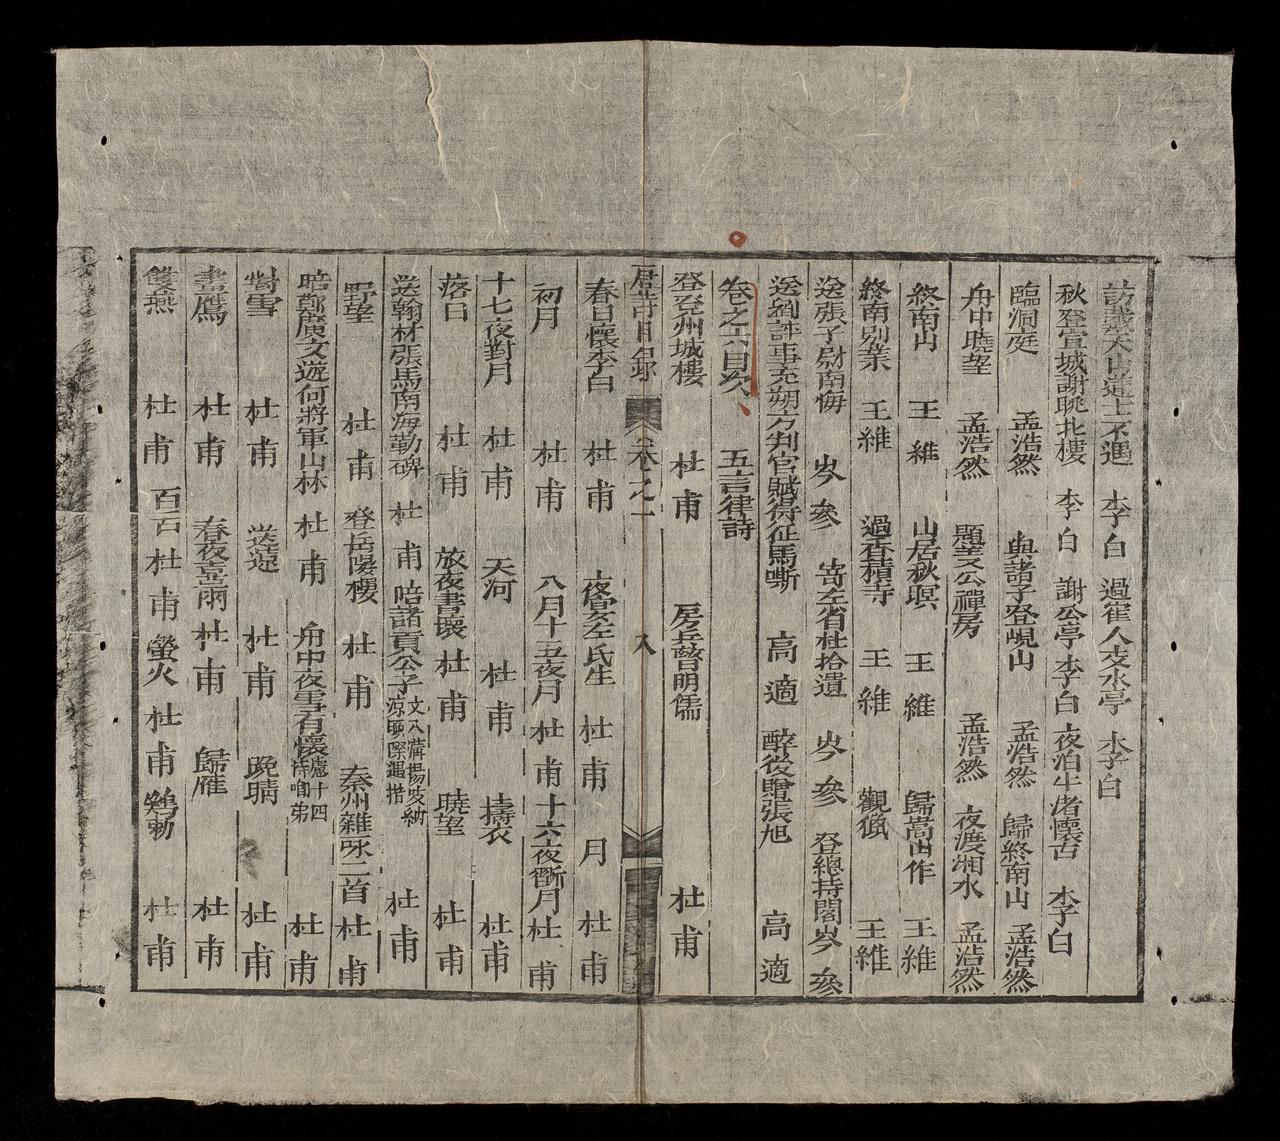 訪戴天山道士不遇 李白 過崔八丈水亭 李白
秋登宣城謝眺北樓 李白 謝公亭 李白 夜泊牛渚懷古 李白
臨洞庭 孟浩然 與諸子登峴山 孟浩然 歸終南山 孟浩然
舟中曉望 孟浩然 題義公禪房 孟浩然 夜渡湘水 孟浩然
終南山 王維 山居秋暝 王維 歸嵩山作 王維
終南別業 王維 過香積寺 王維 觀獵 王維
送張子尉南海 岑參 寄左省杜拾遺 岑參 登總持閣 岑參
送劉評事充朔方判官賦得征馬嘶 高適 醉後贈張旭 高適
卷之六目次 五言律詩
登兗州城樓 杜甫 房兵曹胡馬 杜甫
唐詩目錄 卷之一 八
春日懷李白 杜甫 夜宴左氏庄 杜甫 月 杜甫
初月 杜甫 八月十五夜月 杜甫 十六夜翫月 杜甫
十七夜對月 杜甫 天河 杜甫 擣衣 杜甫
落日 杜甫 旅夜書懷 杜甫 曉望 杜甫
送翰林張司馬南海勒碑 杜甫 陪諸貴公子丈八溝攜妓納涼晚際遇 杜甫
野望 杜甫 登岳陽樓 杜甫 秦州雜咏二首 杜甫
陪鄭廣文遊何將軍山林 杜甫 舟中夜雪有懷盧十四侍御弟 杜甫
對雪 杜甫 送遠 杜甫 晚晴 杜甫
畫鷹 杜甫 春夜喜雨 杜甫 歸雁 杜甫
雙燕 杜甫 百舌 杜甫 螢火 杜甫 鸂鶒 杜甫